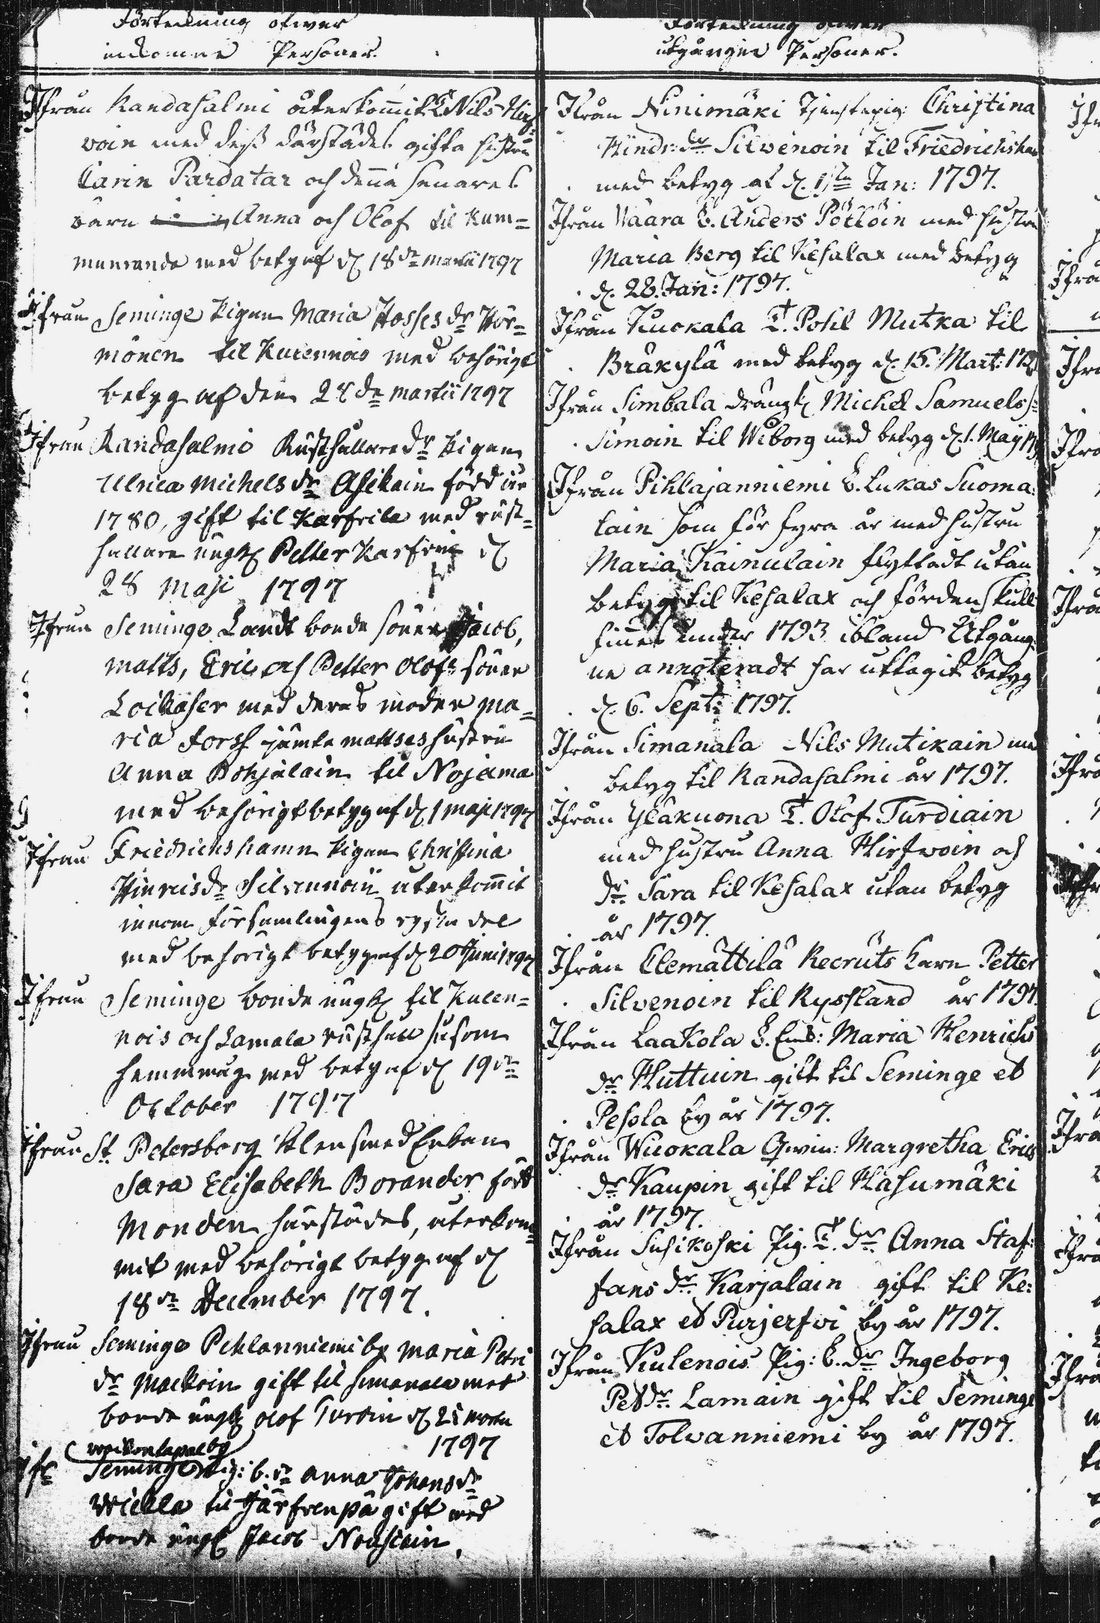 Förteckning öfwer
inkomne Personer.
Ifrån Randasalmi återkommit B. Nils Hir=
woin med dess därstädes gifta hustru
Carin Pardatar och denna senares
barn Anna och Olof til Kum=
munranda med betyg af d. 18de Martii 1797
Ifrån Seminge Pigan Maria Hosses dr Hör=
mönen til Kutennois med behörigt
betyg af den 24de Martii 1797
Ifrån Randasalmi Rusthållare dr Pigan
Ulrica Michels dr Asikain född år
1780, gift til Karfrila med rust=
hållare ungk. Petter d.
28 Maji 1797
Ifrån Seminge Landt bonde söner Jacob,
Matts, Eric och Petter Olofs söner
Loikaser med deras moder Ma=
ria Forss jämte Mattses hustru
Anna Pohjalain til Nojama
med behörigt betyg af d. 1 Maji 1797
Ifrån Friedrichshamn Pigan Christina
Hinricsdr Silvennoin återkommit
innom församlingens ryska del
med behörigt betyg af d. 20 Junii 1797
Ifrån Seminge bonde ungk. til Kulen=
nois och Lamala rusthåll såsom
hemmåg med betyg af d. 19de
October 1797
Ifrån St. Petersborg Klensmed Enkan
Sara Elisabeth Borander född
Monden härstädes, återkom=
mit med behörigt betyg af d.
18de December 1797.
Ifrån Seminge Pihlanniemi by Maria Petri
dr Mackoin gift til Simanala med
bonde ungk. Olof Turtin d. 21
1797
Seminge Pig: b. dr Anna Johans dr
til Järfvenpä gift med
bonde ungk. Jacob Nousiain.
Förteckning öfwer
utgångne Personer.
Ifrån Ninimäki Tjenstepig: Christina
Hindr: dr Silwenoin til Friedrichsham
med betyg af d. 1sta Jan: 1797.
Ifrån Waara B. Anders Pöllöin med hustru
Maria Berg til Kesalax med betyg
d. 28. Jan: 1797.
Ifrån Kuokala T. Pohl Mutka til
Bräkylä med betyg d. 15. Mart: 1797
Ifrån Simbala drängk. Michel Samuels s:
Simoin til Wiborg med betyg d. 1. Maij
Ifrån Pihlajanniemi B. Lukas Suoma:
lain som för fyra år med hustru
Maria Kainulain flyttadt utan
betyg til Kesalax och fördenskull
finnes under 1793 ibland Utgång
ne annoteradt har uttagit betyg
d. 6. Sept: 1797.
Ifrån Simanala Nils Mutikain med
betyg til Randasalmi år 1797.
Ifrån Yläkuona T. Olof Turdiain
med hustru Anna Hirfwoin och
dr Sara til Kesalax utan betyg
år 1797.
Ifrån Clemättilä Recruts karn Petter
Silvenoin til Ryssland år 1797.
Ifrån Laakola B. Enk: Maria Henrichs
dr Huttuin gift til Seminge et
Pesola by år 1797.
Ifrån Wuokala Qwin: Margretha Erics
dr Kaupin gift til Hasumäki
år 1797.
Ifrån Susikoski Pig. T. dr Anna Staf:
fans dr Karjalain gift til Ke:
salax et Purjerfwi by år 1797.
Ifrån Kulenois Pig: B. dr Ingeborg
Pet dr Lamain gift til Seminge
et Tolvanniemi by år 1797.